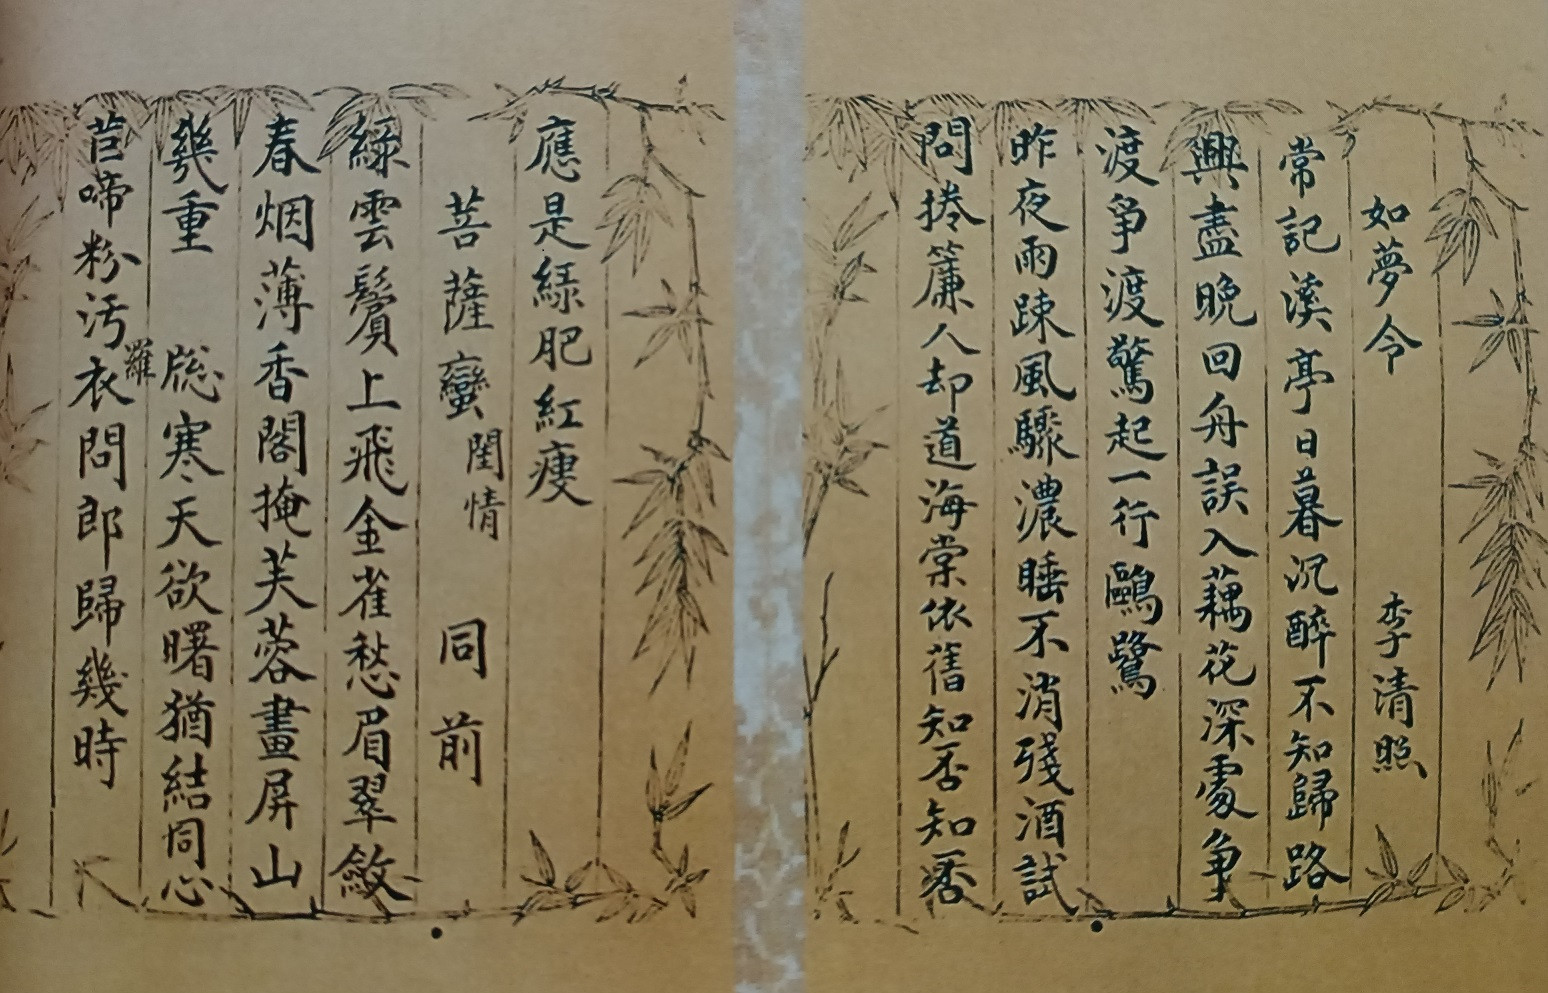 如夢令 李清照
常記溪亭日暮沉醉不知歸路
興盡晚回舟誤入藕花深處爭
渡爭渡驚起一行鷗鷺
昨夜雨踈風驟濃睡不消殘酒試
問捲簾人却道海棠依舊知否知否
應是綠肥紅瘦
菩薩蠻 閨情 同前
綠雲鬢上飛金雀愁眉翠斂
春烟薄香閣掩芙蓉畫屏山
幾重 牕寒天欲曙猶結同心
苣啼粉汚羅衣問郎歸幾時